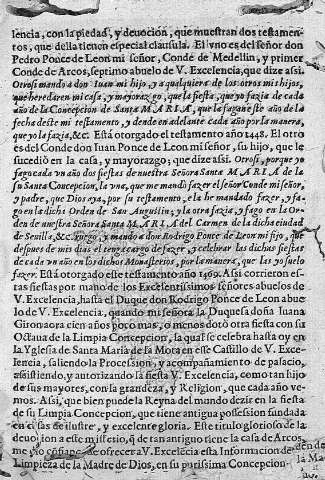 lencia, con la piedad, y deuocion, que muestran dos testamen-
tos, que della tienen especial clausula. El vno es del señor don
Pedro Ponce de Leon mi señor, Conde de Medellin, y primer
Conde de Arcos, septimo abuelo de V. Excelencia, que dize assi.
Otrosi mando a don Iuan mi hijo, y a qualquiera de los otros mis hijos,
que heredaren mi casa, y mayorazgo, que la fiesta, que yo fazia de cada
año de la Concepcion de Santa MARIA, que la fagan este año de la
fecha deste mi testamento, y dende en adelante cada año por la manera,
que yo la fazia, &c. Està otorgado el testamento año 1448. El otro
es del Conde don Iuan Ponce de Leon mi señor, su hijo, que le
sucediò en la casa, y mayorazgo; que dize assi. Otrosi, porque yo
fago cada vn año dos fiestas de nuestra Señora Santa MARIA de la
su Santa Concepcion, la vna, que me mandò fazer el señor Conde mi señor,
y padre, que Dios aya, por su testamento, e la he mandado fazer, y fa-
go en la dicha Orden de San Augustin; y la otra fazia, y fago en la Or-
den de nuestra Señora Santa MARIA del Carmen de la dicha ciudad
de Seuilla, &c. Ruego, y mando a don Rodrigo Ponce de Leon mi fijo, que
despues de mis dias el tenga cargo de fazer, y celebrar las dichas fiestas
de cada vn año en los dichos Monasterios, por la manera, que las yo suelo
fazer. Està otorgado este testamento año 1469. Assi corrieron es-
tas fiestas por mano de los Excelentissimos señores abuelos de
V. Excelencia, hasta el Duque don Rodrigo Ponce de Leon abue
lo de V. Excelencia, quando mi señora la Duquesa doña Iuana
Giron aora cien años poco mas, o menos dotò otra fiesta con su
Octaua de la Limpia Concepcion, la qual se celebra hasta oy en
la Yglesia de Santa Maria de la Mota en esse Castillo de V. Exce-
lencia, saliendo la Procession, y acompañamiento de palacio,
assistiendo, y autorizando la fiesta V. Excelencia, como tan hijo
de sus mayores, con la grandeza, y Religion, que cada año ve-
mos. Assi, que bien puede la Reyna del mundo dezir en la fiesta
de su Limpia Concepcion, que tiene antigua possession fundada
en casas de ilustre, y excelente gloria. Este titulo glorioso de la
deuocion a este misterio, que de tan antiguo tiene la casa de Arcos,
me de ofrecer a V. Excelēcia esta Informacion de
Limpieza de la Madre de Dios, en su purissima Concepcion